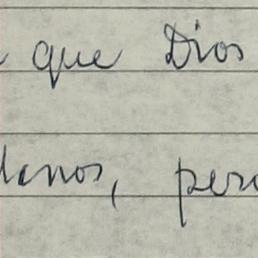 que Dios
lanos, pero